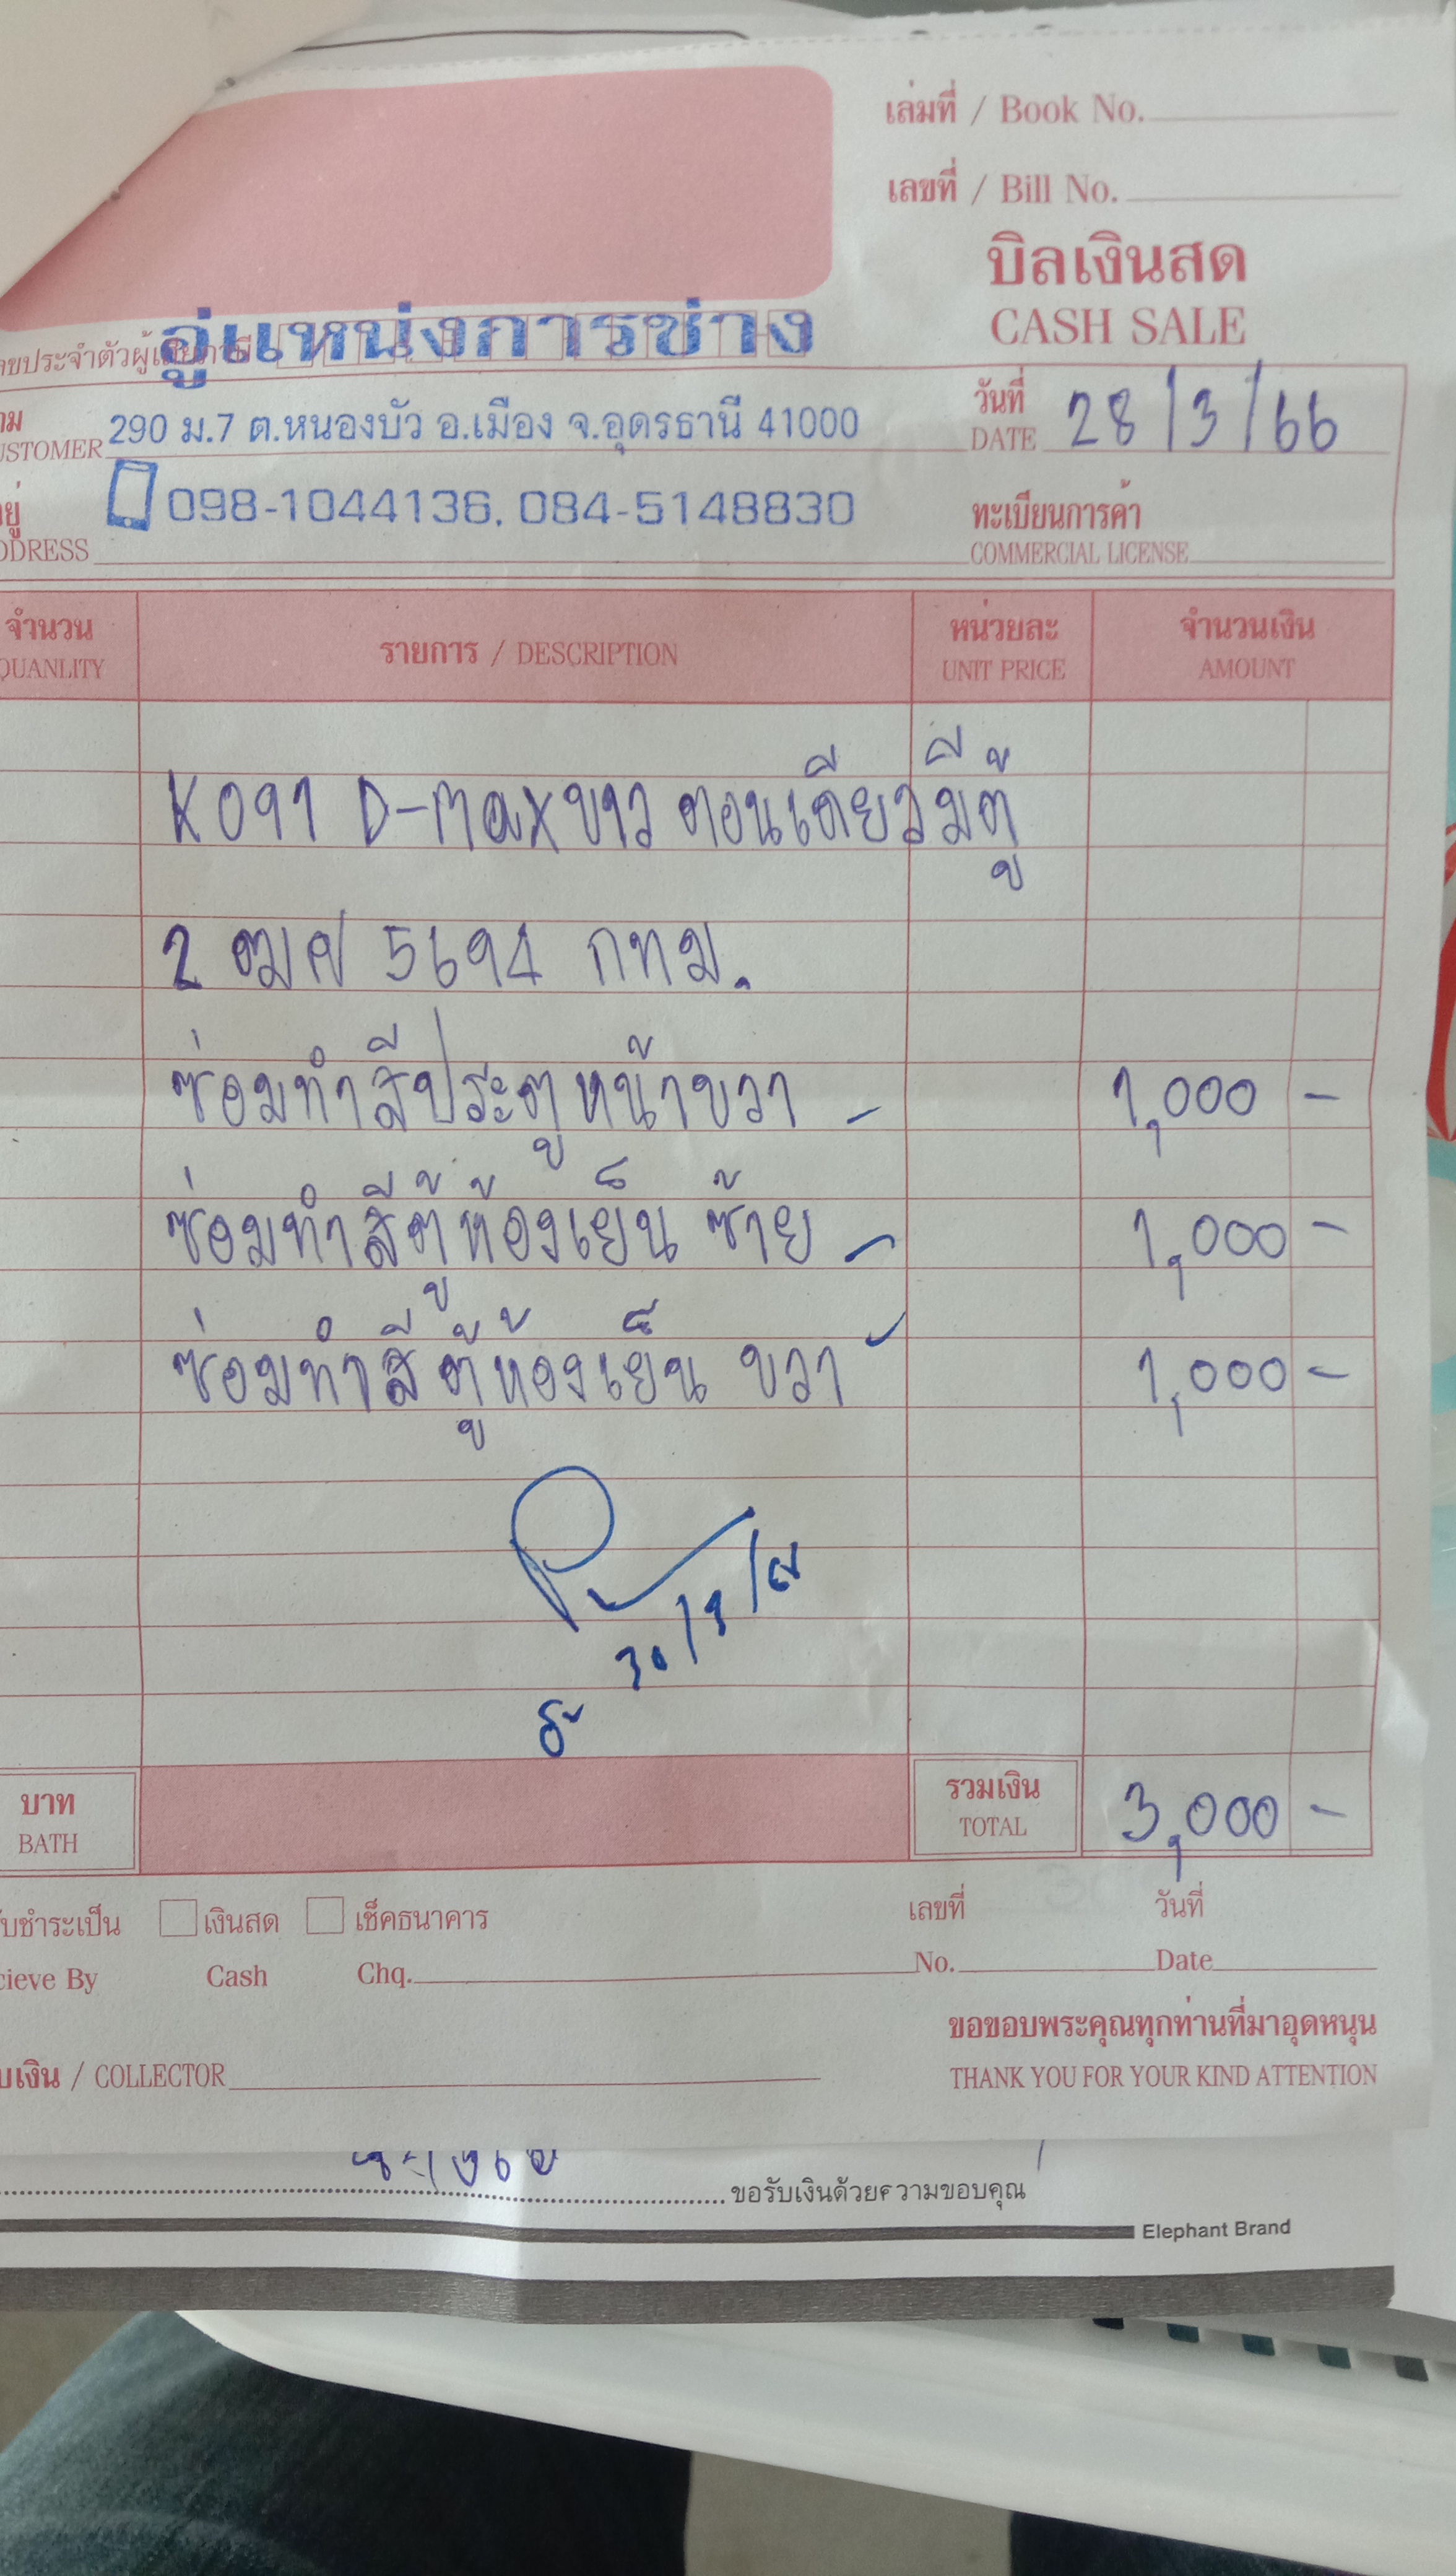 เล่มที่ / Book No.
เลขที่ / Bill No.
บิลเงินสด
CASH SALE
อู่แหน่งการช่าง
ขประจำตัวผู้เสียภาษี
290 ม.7 ต.หนองบัว อ.เมือง จ.อุดรธานี 41000
USTOMER
วันที่
DATE 28/3/66
098-1044136, 084-5148830
DDRESS
ทะเบียนการค้า
COMMERCIAL LICENSE
จำนวน
QUANLITY
รายการ / DESCRIPTION
หน่วยละ
UNIT PRICE
จำนวนเงิน
AMOUNT
K091 D-max ขาว ตอนเดียวมีตู้
2 ฒศ 5694 กทม.
ซ่อมทำสีประตูหน้าขวา - 1,000 -
ซ่อมทำสีตู้ห้องเย็น ซ้าย - 1,000 -
ซ่อมทำสีตู้ห้องเย็น ขวา - 1,000 -
บาท
BATH
รวมเงิน
TOTAL
3,000 -
บชำระเป็น เงินสด เช็คธนาคาร เลขที่ วันที่
cieve By Cash Chq. No. Date
ขอขอบพระคุณทุกท่านที่มาอุดหนุน
บเงิน / COLLECTOR THANK YOU FOR YOUR KIND ATTENTION
ขอรับเงินด้วยความขอบคุณ
Elephant Brand